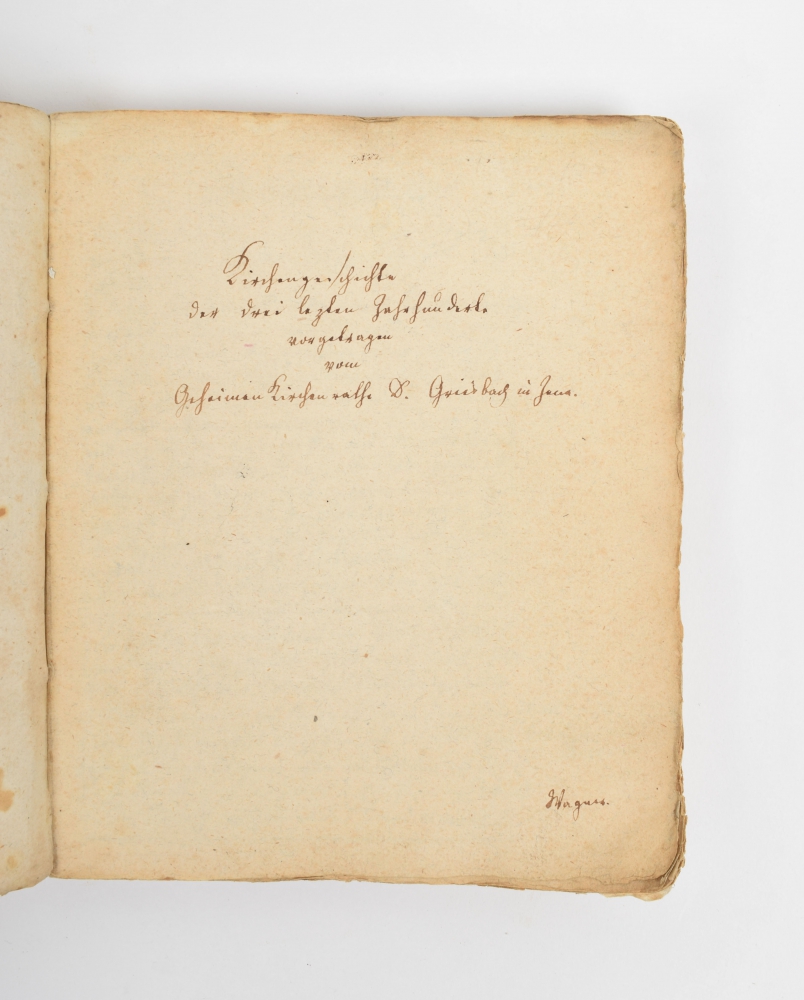 Kirchengeschichte
der drei lezten Jahrhunderte
vorgetragen
vom
Geheimen Kirchenrathe D. Griesbach in Jena.
Wagner.